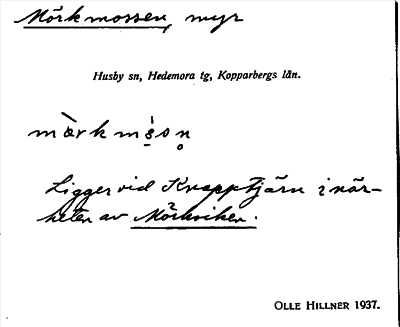 Mörkmossen, myr
Husby sn, Hedemora tg, Kopparbergs län.
mö̀rkmå̀son̥
Ligger vid Knapptjärn i när-
heten av Mörkviken.
OLLE HILLNER 1937.